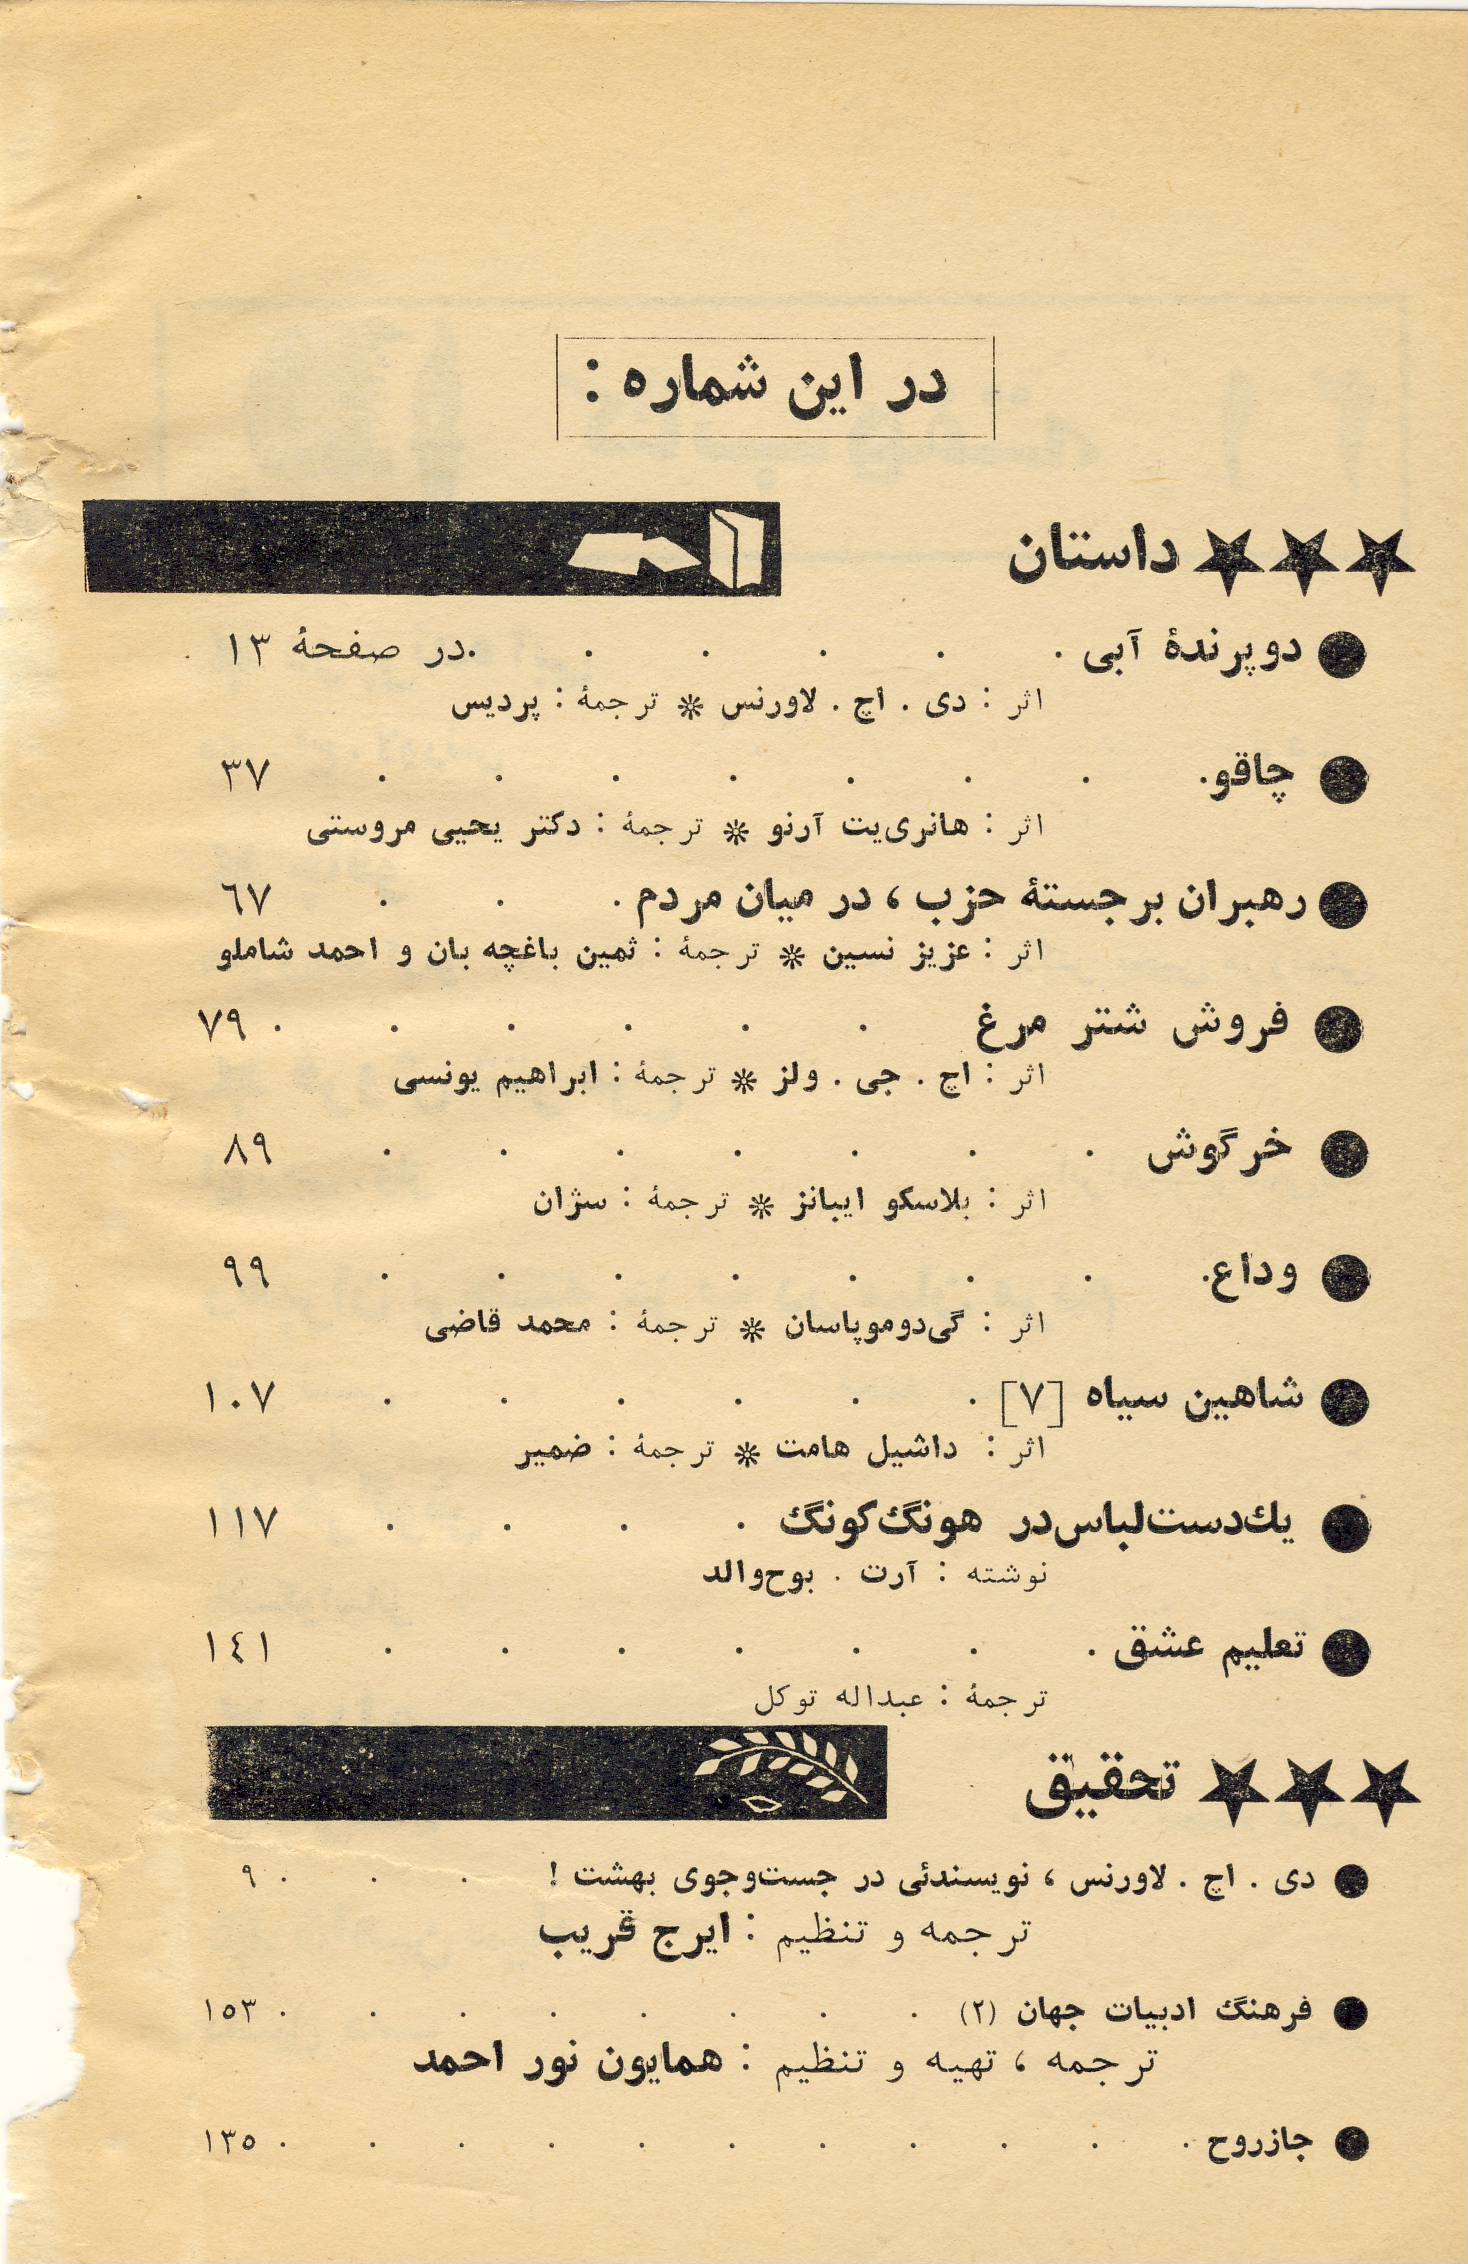 در این شماره :
داستان
دو پرندهٔ آبی . . . . . . در صفحهٔ ۱۳
اثر : دی . اچ . لاورنس * ترجمهٔ : پردیس
چاقو . . . . . . . . ۳۷
اثر : هانری‌یت آرنو * ترجمهٔ : دکتر یحیی مروستی
رهبران برجستهٔ حزب ، در میان مردم . . . ٦۷
اثر : عزیز نسین * ترجمهٔ : ثمین باغچه بان و احمد شاملو
فروش شتر مرغ . . . . . . ۷۹
اثر : اچ . جی . ولز * ترجمهٔ : ابراهیم یونسی
خرگوش . . . . . . . ۸۹
اثر : بلاسکو ایبانز * ترجمهٔ : سژان
وداع . . . . . . . . ۹۹
اثر : گی‌دوموپاسان * ترجمهٔ : محمد قاضی
شاهین سیاه [۷] . . . . . . ۱۰۷
اثر : داشیل هامت * ترجمهٔ : ضمیر
یك‌دست‌لباس‌در هونگ‌کونگ . . . . ۱۱۷
نوشته : آرت . بوح‌والد
تعلیم عشق . . . . . . . ۱٤۱
ترجمهٔ : عبداله توکل
تحقیق
دی . اچ . لاورنس ، نویسندئی در جست‌وجوی بهشت ! . . . ۹
ترجمه و تنظیم : ایرج قریب
فرهنگ ادبیات جهان (۲) . . . . . . . . ۱۵۳
ترجمه ، تهیه و تنظیم : همایون نور احمد
جازروح . . . . . . . . . . . ۱۳۵